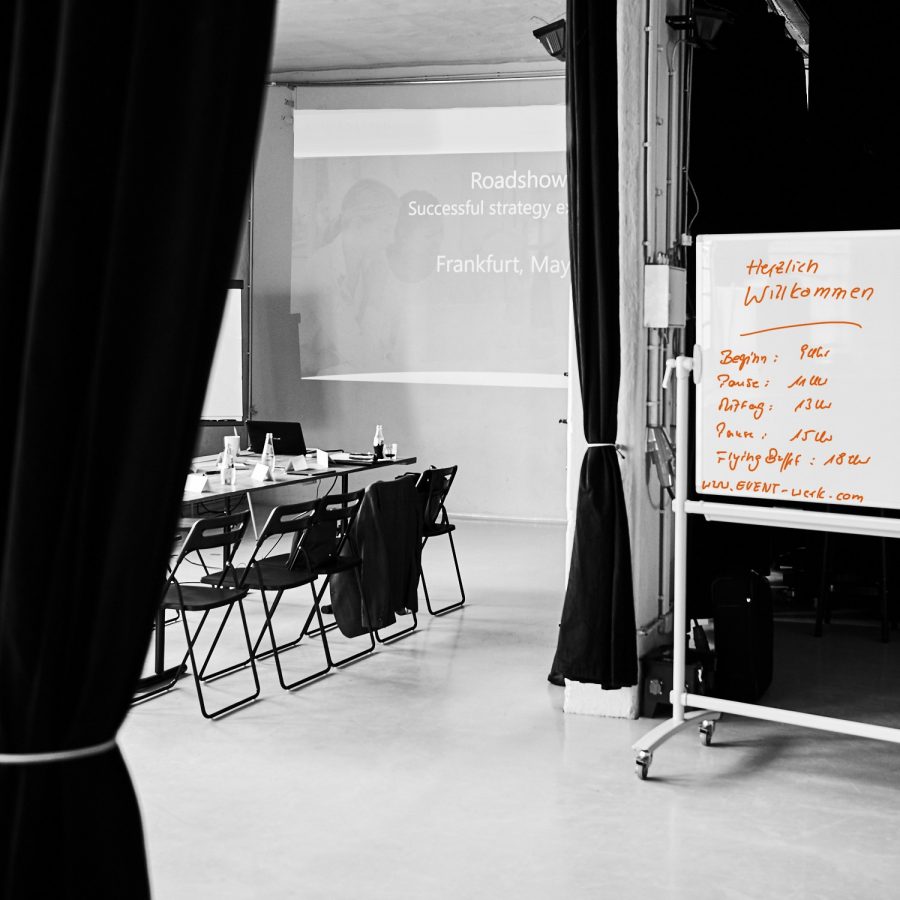 Roadshow
Successful strategy
Frankfurt, May
Herzlich
Willkommen
Beginn: 9 Uhr
Pause: 11 Uhr
Mittag: 13 Uhr
Pause: 15 Uhr
Flying Buffet: 18 Uhr
www.EVENT-werk.com